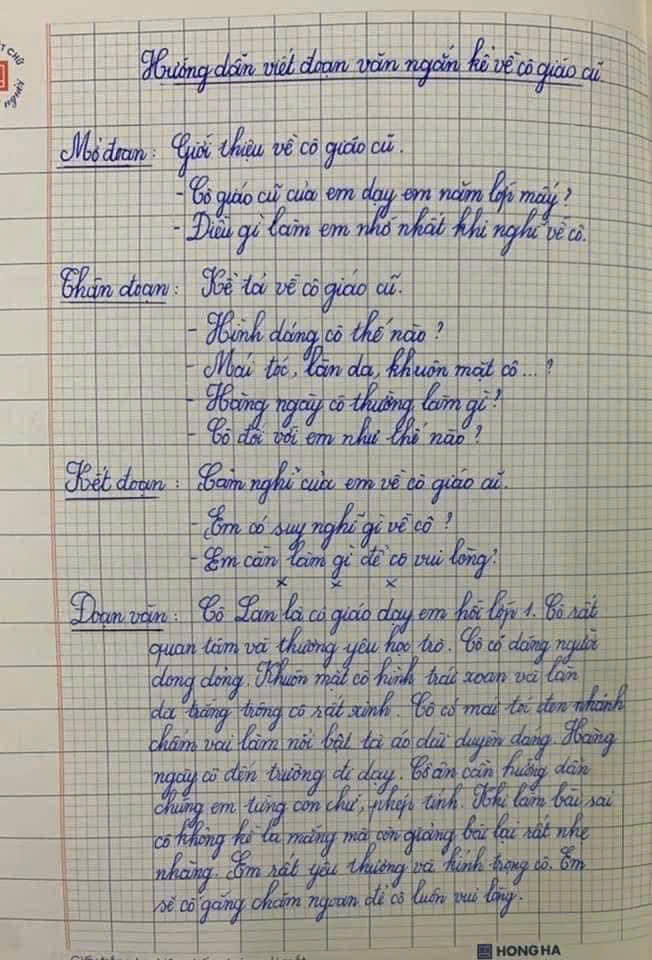 T CHỮ
NGƯỜI
Hướng dẫn viết đoạn văn ngắn kể về cô giáo cũ
Mở đoạn: Giới thiệu về cô giáo cũ.
- Cô giáo cũ của em dạy em năm lớp mấy?
- Điều gì làm em nhớ nhất khi nghĩ về cô.
Thân đoạn: Kể tả về cô giáo cũ.
- Hình dáng cô thế nào?
- Mái tóc, làn da, khuôn mặt cô...?
- Hàng ngày cô thường làm gì?
- Cô đối với em như thế nào?
Kết đoạn: Cảm nghĩ của em về cô giáo cũ.
- Em có suy nghĩ gì về cô?
- Em cần làm gì để cô vui lòng?
x x x
Đoạn văn: Cô Lan là cô giáo dạy em hồi lớp 1. Cô rất
quan tâm và thương yêu học trò. Cô có dáng người
dong dỏng. Khuôn mặt cô hình trái xoan và làn
da trắng trông cô rất xinh. Cô có mái tóc đen nhánh
chấm vai làm nổi bật tà áo dài duyên dáng. Hàng
ngày cô đến trường để dạy. Cô ân cần hướng dẫn
chúng em từng con chữ, phép tính. Khi làm bài sai
cô không hề la mắng mà còn giảng bài lại rất nhẹ
nhàng. Em rất yêu thương và kính trọng cô. Em
sẽ cố gắng chăm ngoan để cô luôn vui lòng.
HONG HA